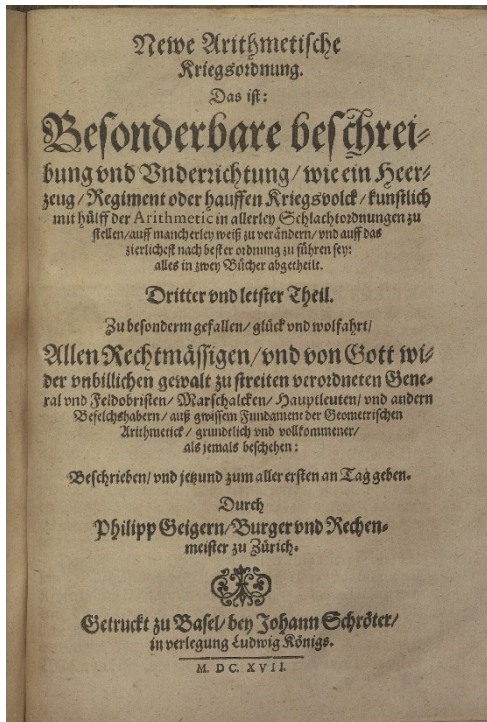 Newe Arithmetische
Kriegsordnung.
Das ist:
Besonderbare beschrei-
bung vnd Vnderrichtung/ wie ein Heer-
zeug/ Regiment oder hauffen Kriegsvolck/ kunstlich
mit hülff der Arithmetic in allerley Schlachtordnungen zu
stellen/ auff mancherley weiß zu verändern/ vnd auff das
zierlichest nach bester ordnung zu führen sey:
alles in zwey Bücher abgetheilt.
Dritter vnd letster Theil.
Zu besonderm gefallen/ glück vnd wolfahrt/
Allen Rechtmässigen/ vnd von Gott wi-
der vnbillichen gewalt zu streiten verordneten Gene-
ral vnd Feldobristen/ Marschalcken/ Hauptleuten/ vnd andern
Befelchshabern/ auß gwissem Fundament der Geometrischen
Arithmetick/ grundtlich vnd vollkommener/
als jemals beschehen:
Beschrieben/ vnd jetzund zum aller ersten an Tag geben.
Durch
Philipp Geigern/ Burger vnd Rechen-
meister zu Zürich.
Getruckt zu Basel/ bey Johann Schröter/
in verlegung Ludwig Königs.
M. DC. XVII.